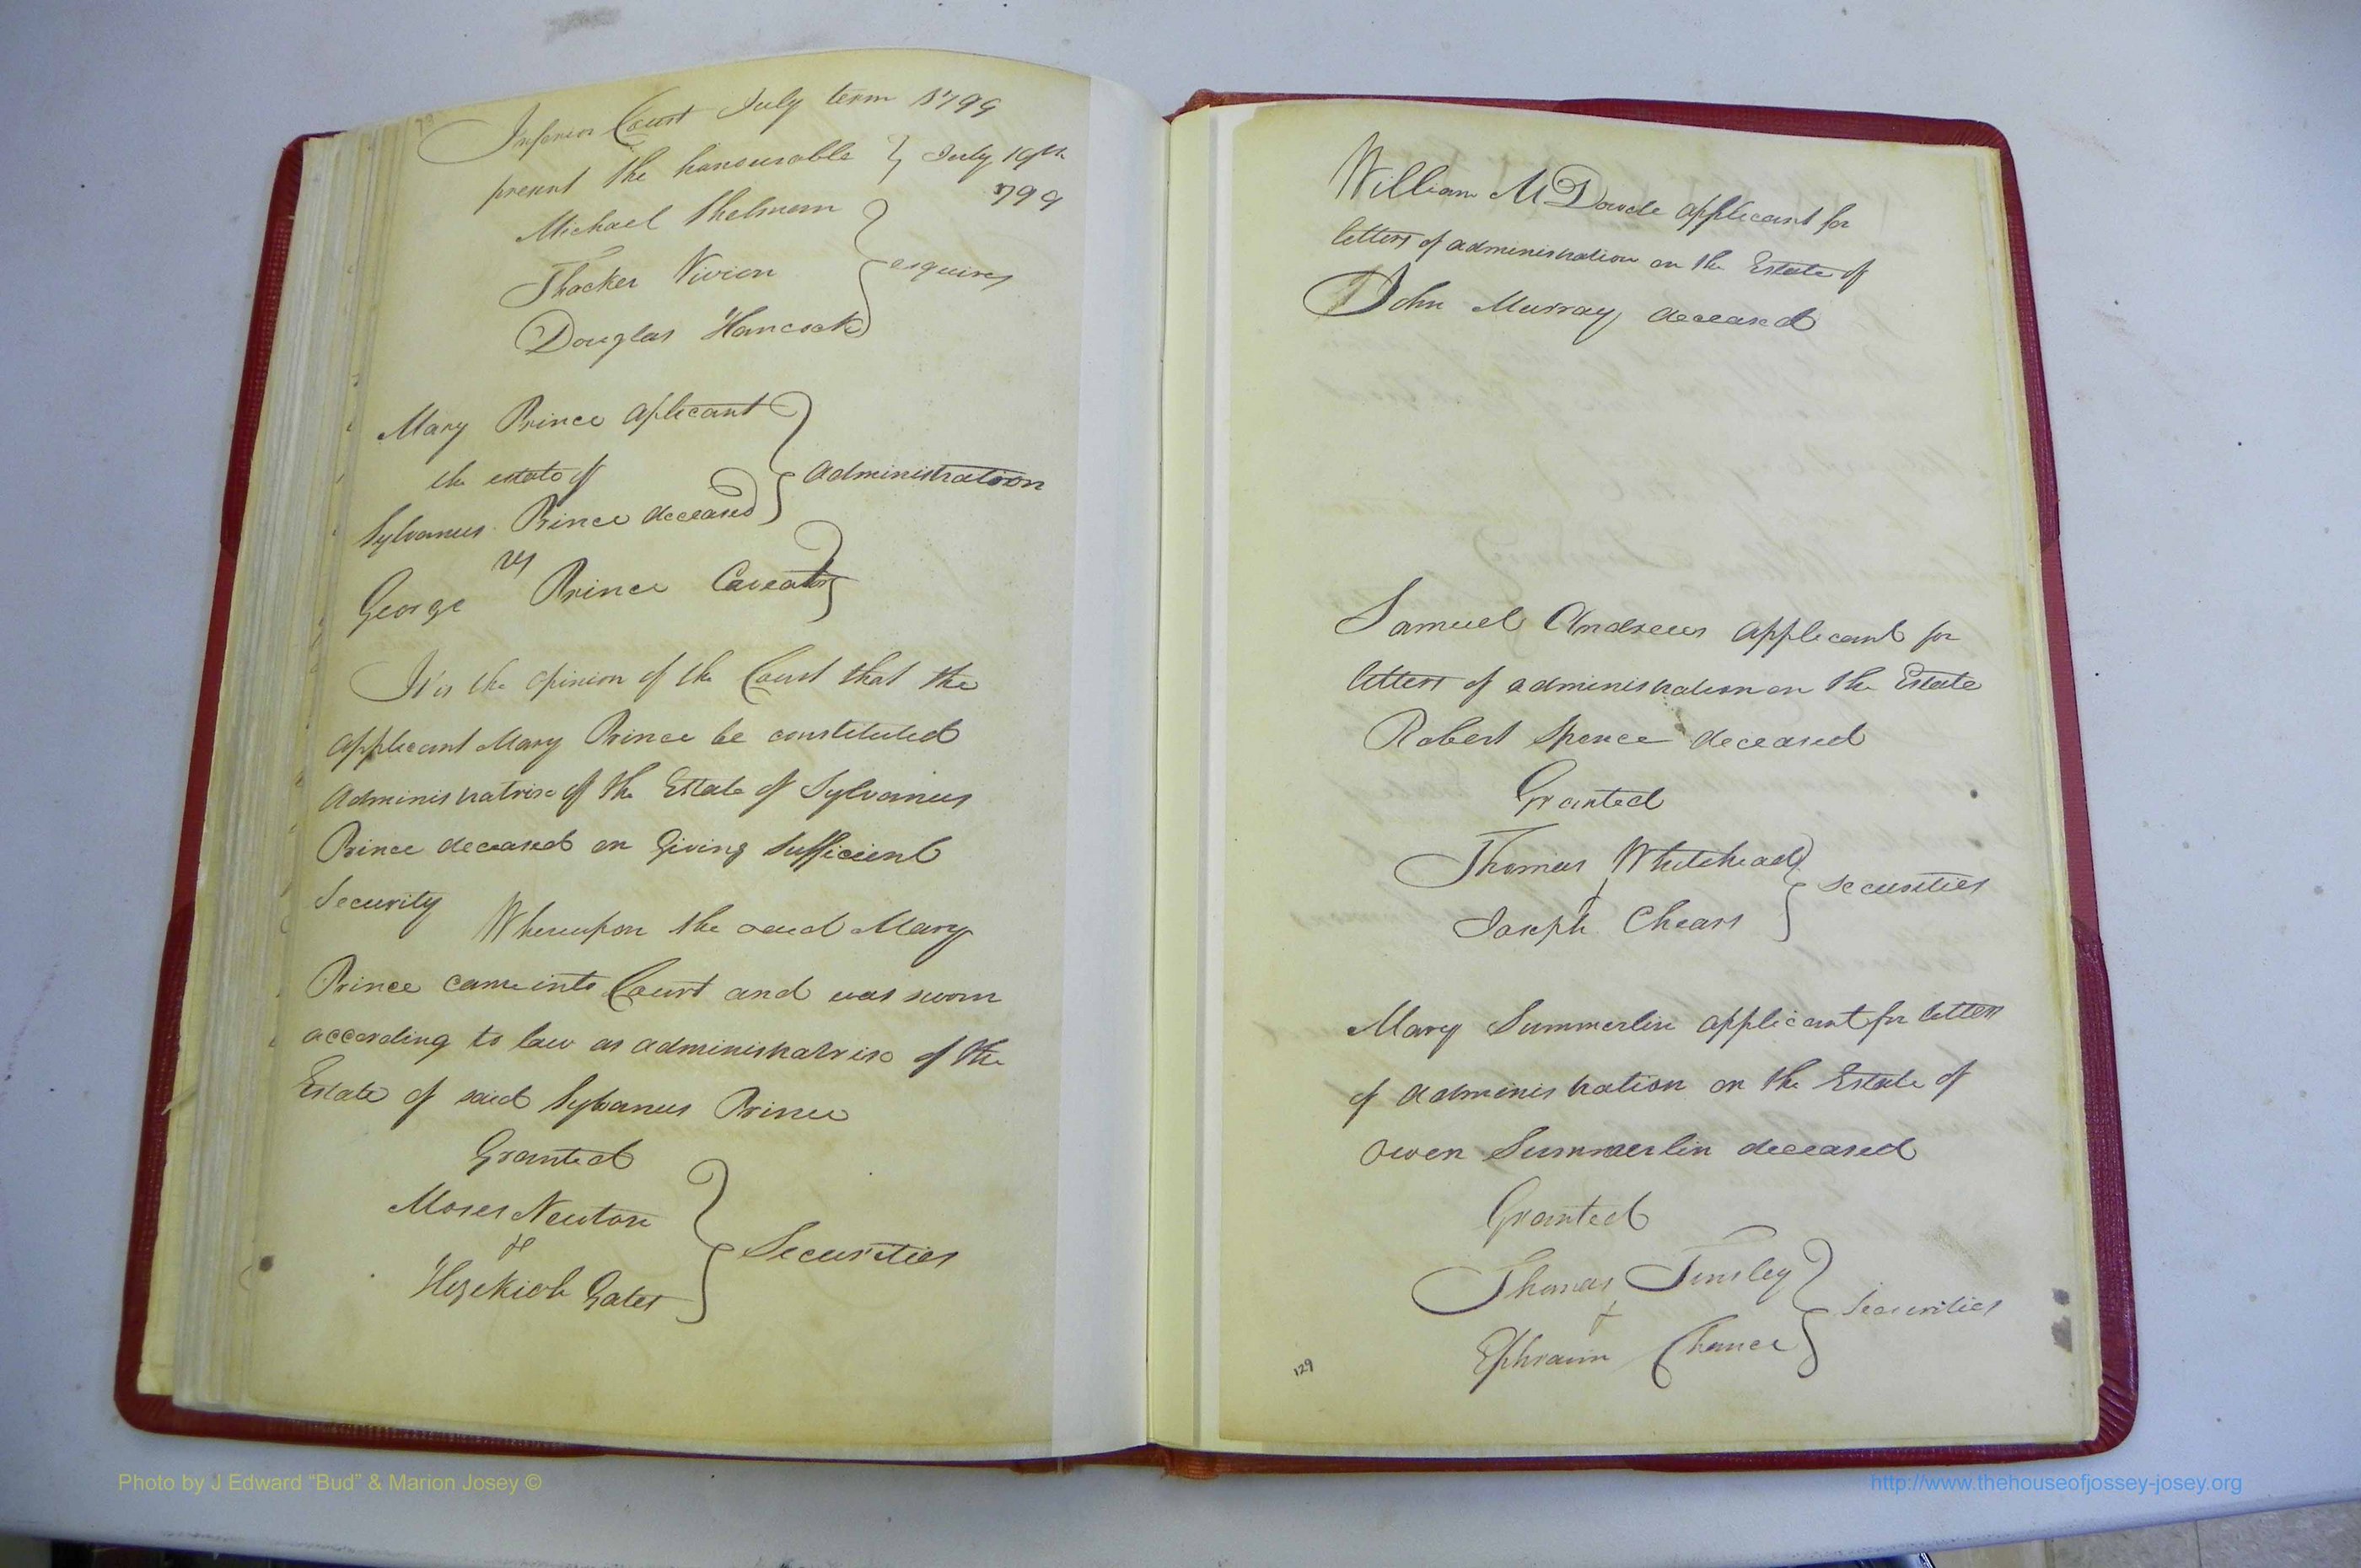 Inferior Court July term 1799
present the honourable } July 19th
1799
Michael Shelmern
Thacker Vivion } esquires
Douglas Hancock
Mary Prince aplicant
the estate of } Administration
Sylvanus Prince deceased
vs
George Prince Caveator
It is the opinion of the Court that the
applicant Mary Prince be constituted
Administratrix of the Estate of Sylvanus
Prince deceased on Giving Sufficient
Security Whereupon the said Mary
Prince came into Court and was sworn
according to law as administratrix of the
Estate of said Sylvanus Prince
Granted
Moses Newton
& } Securities
Hezekiah Gates
William McDowele applicant for
letters of administration on the Estate of
John Murray deceased
Samuel Andrews applicant for
letters of administration on the Estate
Robert Spence deceased
Granted
Thomas Whitehead
& } Securities
Joseph Chears
Mary Summerlin applicant for letters
of administration on the Estate of
Owen Summerlin deceased
Granted
Thomas Tinsley
& } Securities
Ephraim Chance
129
Photo by J Edward “Bud” & Marion Josey ©
http://www.thehouseofjossey-josey.org